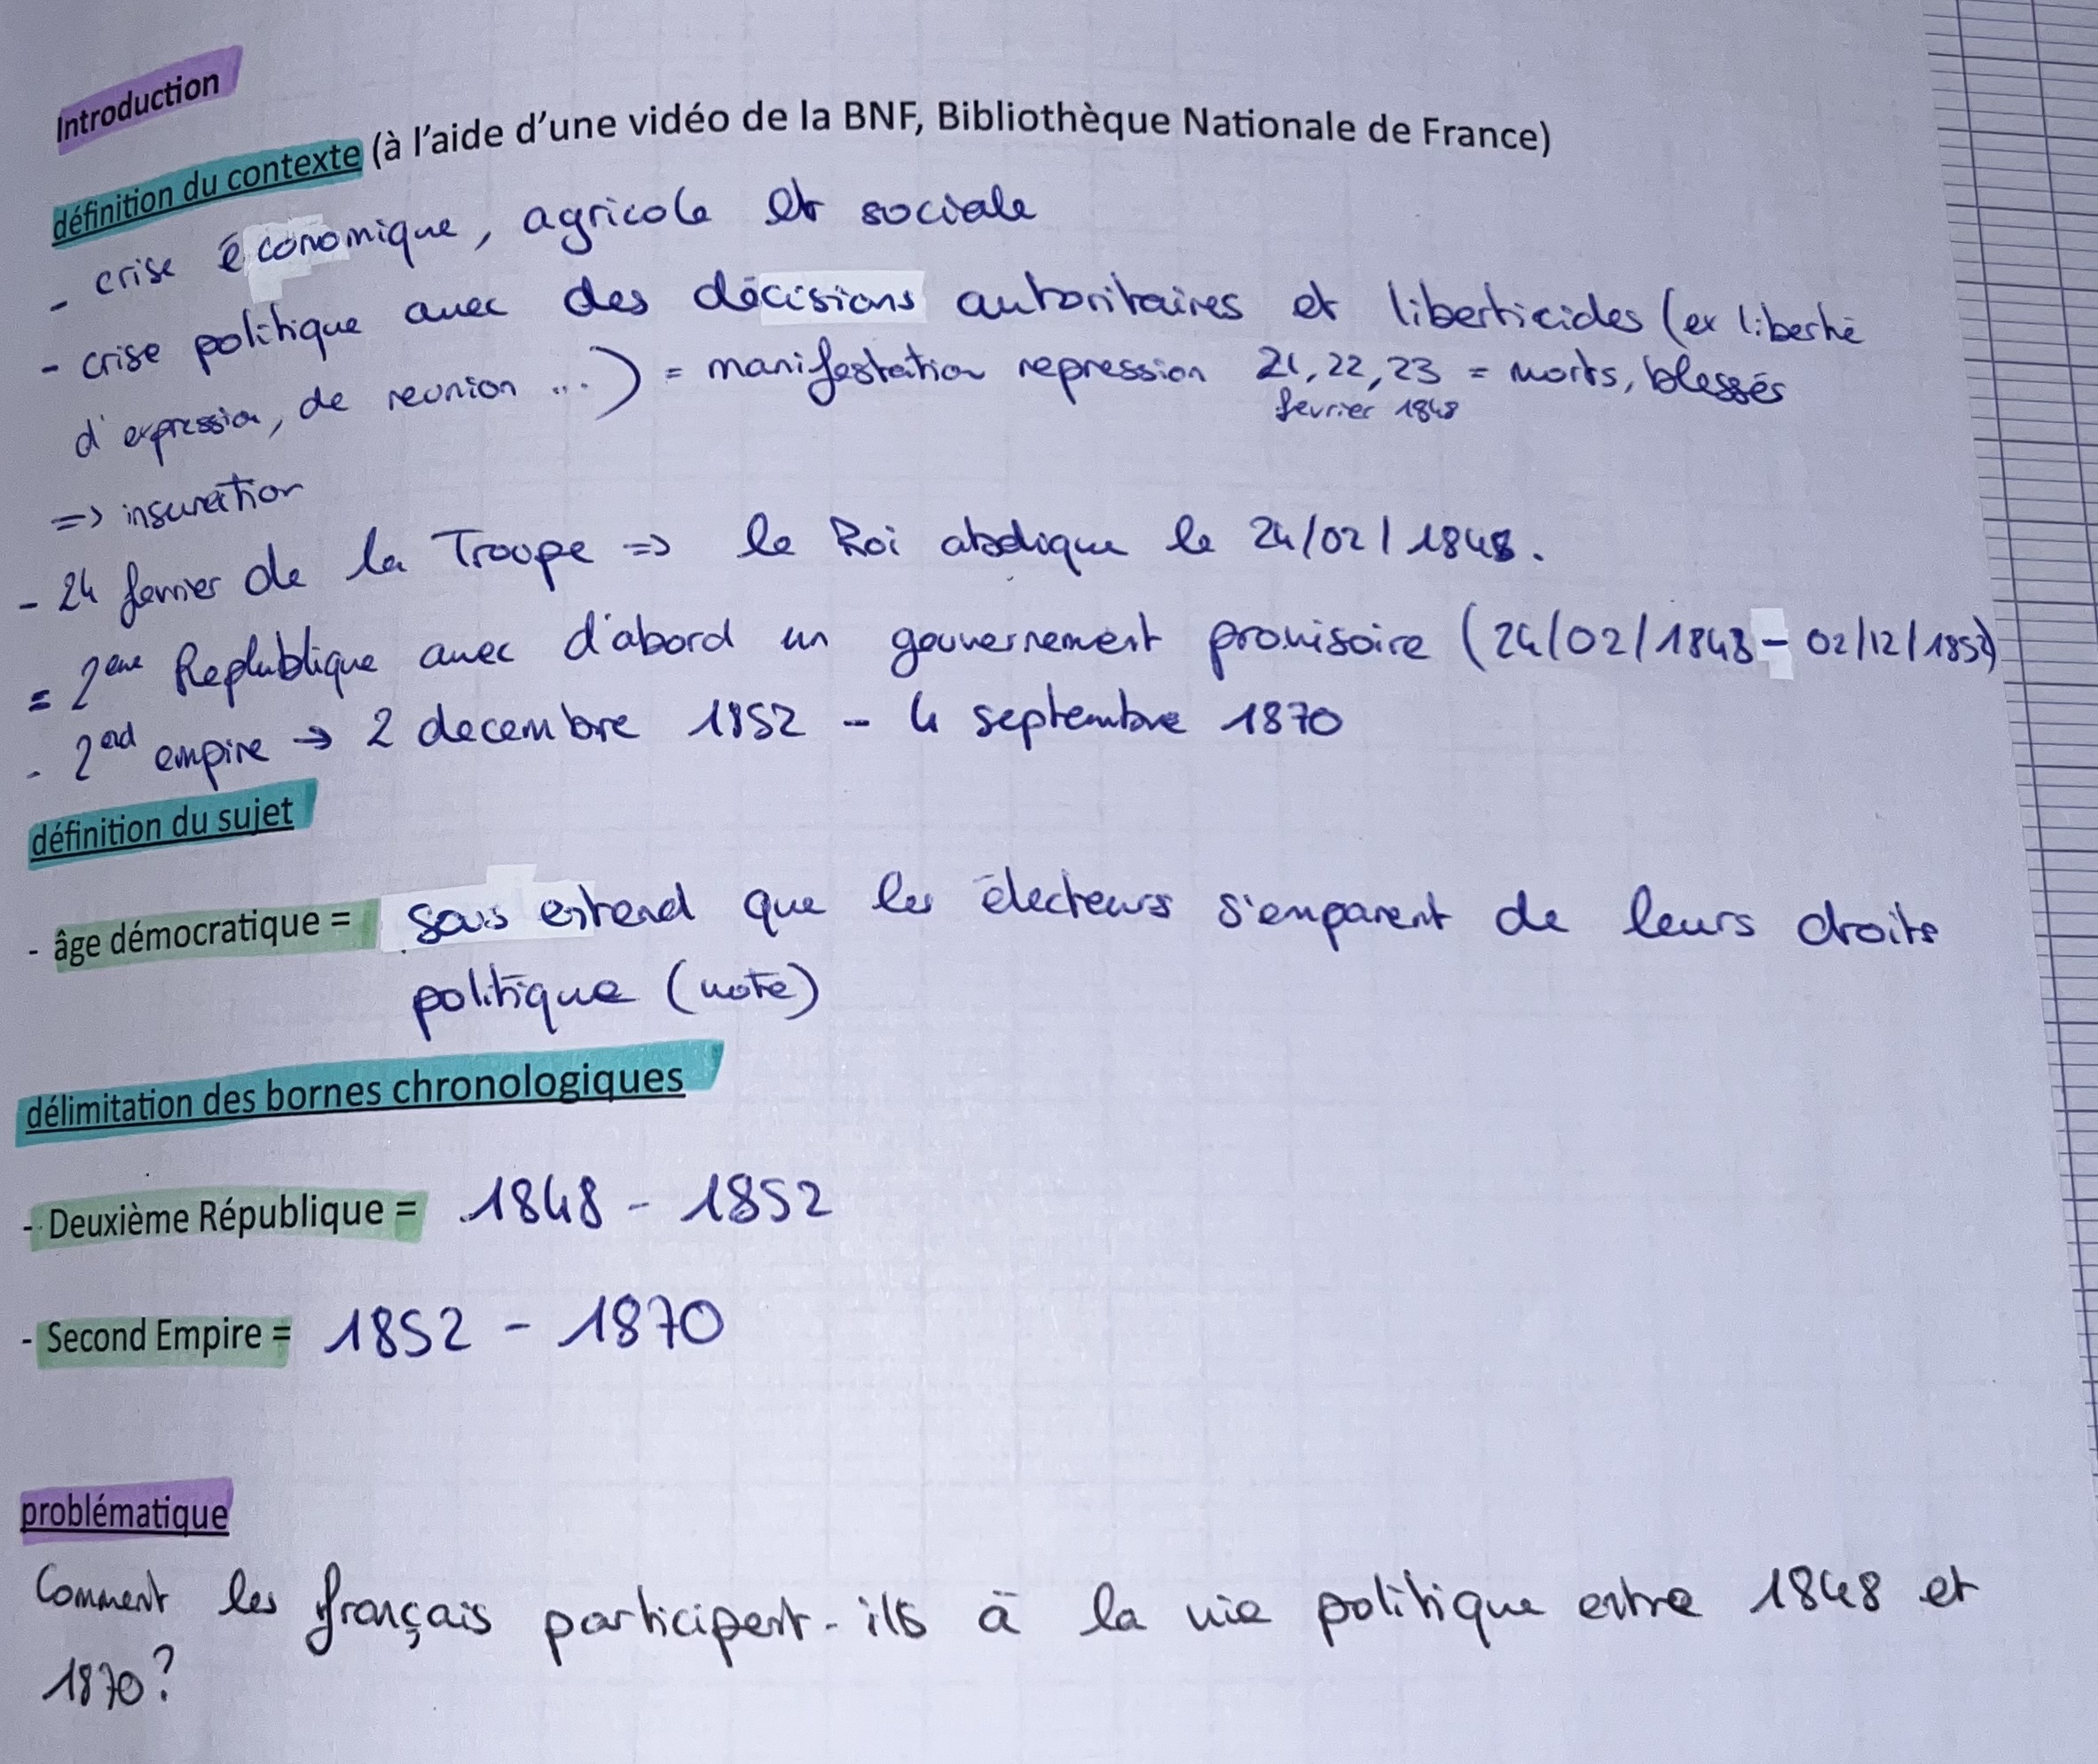 Introduction
définition du contexte (à l'aide d'une vidéo de la BNF, Bibliothèque Nationale de France)
- crise économique, agricole et sociale
- crise politique avec des décisions autoritaires et liberticides (ex liberté
d'expression, de reunion ...) = manifestation repression 21, 22, 23 = morts, blessés
fevrier 1848
=> insurection
- 24 fevrier de la Troupe => le Roi abdique le 24/02/1848.
= 2eme Replublique avec d'abord un gouvernement provisoire (24/02/1848 - 02/12/1852)
- 2nd empire → 2 decembre 1852 - 4 septembre 1870
définition du sujet
- âge démocratique = sous entend que les électeurs s'emparent de leurs droits
politique (vote)
délimitation des bornes chronologiques
- Deuxième République = 1848 - 1852
- Second Empire = 1852 - 1870
problématique
Comment les français participent-ils à la vie politique entre 1848 et
1870?